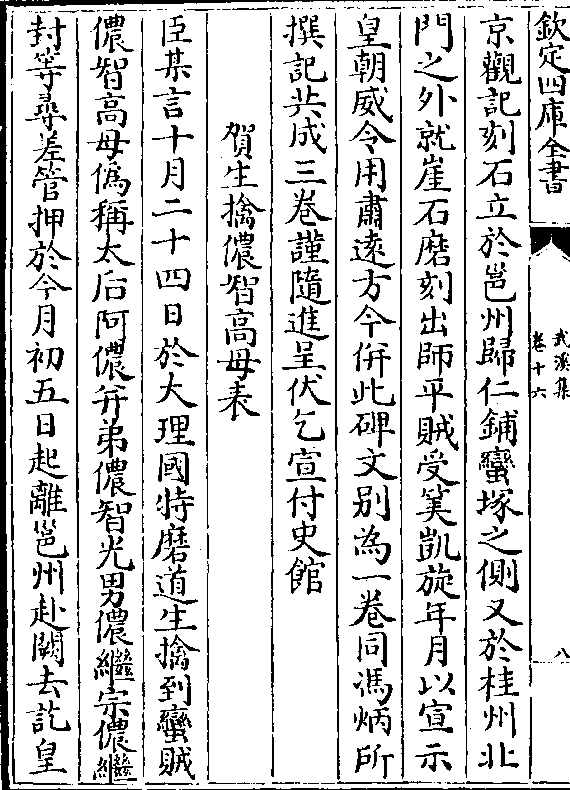 欽定四庫全書
武溪集
卷十六
八
京觀記刻石立於邕州歸仁鋪蠻塚之側又於桂州北
門之外就崖石磨刻出師平賊受筭凱旋年月以宣示
皇朝威令用肅遠方今併此碑文別為一卷同馮炳所
撰記共成三卷謹隨進呈伏乞宣付史館
賀生擒儂智高母表
臣某言十月二十四日於大理國特磨道生擒到蠻賊
儂智高母偽稱太后阿儂并弟儂智光男儂繼宗儂繼
封等尋差管押於今月初五日起離邕州赴闕去訖皇